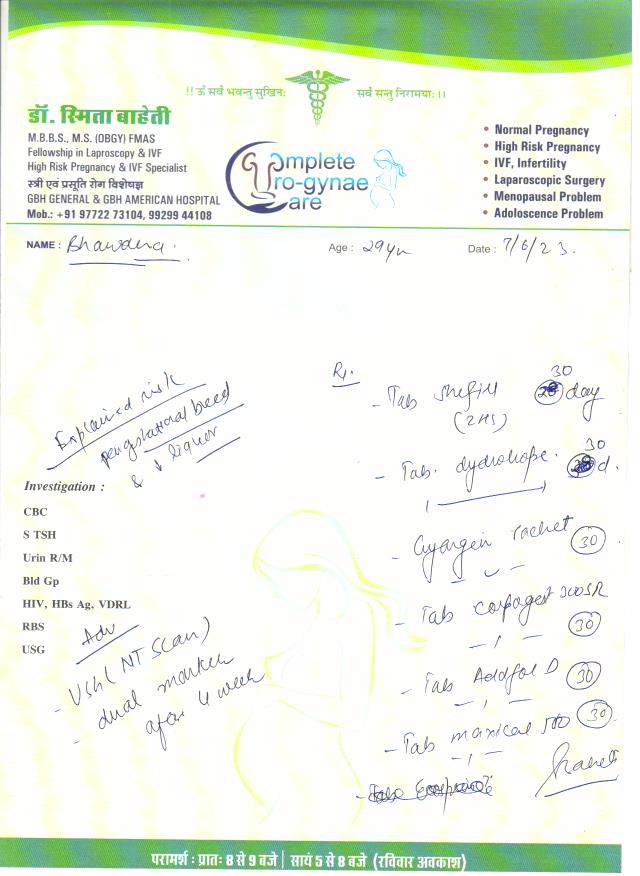 !! ॐ सर्व भवन्तु सुखिनः सर्व सन्तु निरामयाः ।।
डॉ. स्मिता बाहेती
M.B.B.S., M.S. (OBGY) FMAS
Fellowship in Laproscopy & IVF
High Risk Pregnancy & IVF Specialist
स्त्री एवं प्रसूति रोग विशेषज्ञ
GBH GENERAL & GBH AMERICAN HOSPITAL
Mob.: +91 97722 73104, 99299 44108
Complete
Uro-gynae
Care
• Normal Pregnancy
• High Risk Pregnancy
• IVF, Infertility
• Laparoscopic Surgery
• Menopausal Problem
• Adoloscence Problem
NAME : Bhawdna. Age : 29yr Date : 7/6/23.
Explained risk
bleed
& ↓ liquor
Investigation :
CBC
S TSH
Urin R/M
Bld Gp
HIV, HBs Ag, VDRL
RBS
USG
Adv
- USG (NT Scan)
- dual marker
after 4 week
Rx.
30
- Tab day
(2HS)
30
- Tab. d.
- sachet 30
- Tab 300SR
30
- Tab Addfol D 30
- Tab maxical 500 30
परामर्श : प्रातः 8 से 9 बजे | सायं 5 से 8 बजे (रविवार अवकाश)